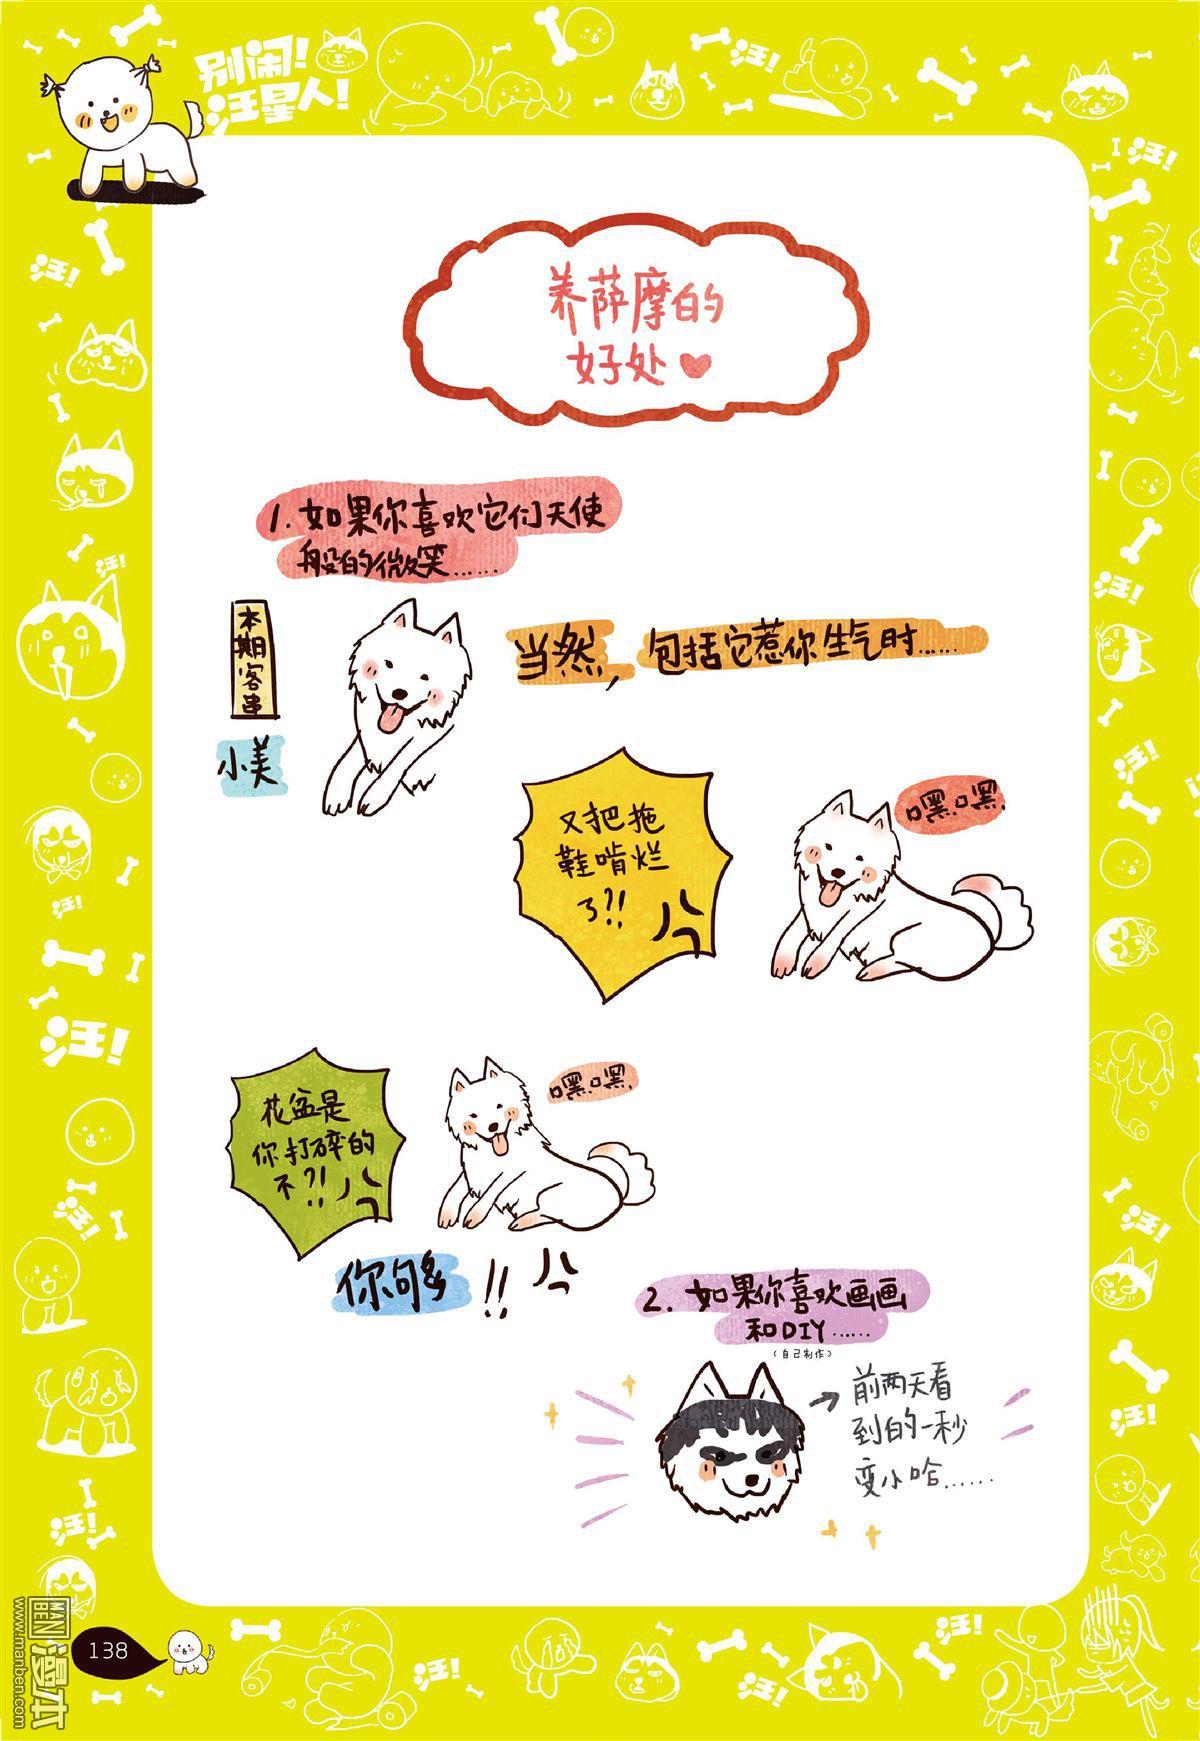 别闹!
汪星人!
汪!
汪!
汪!
养萨摩的
好处
1. 如果你喜欢它们天使
般的微笑……
本期客串
小美
当然, 包括它惹你生气时……
又把拖
鞋啃烂
了?!
嘿嘿
花盆是
你打碎的
不?!
嘿嘿
你够 !!
2. 如果你喜欢画画
和DIY……
(自己制作)
前两天看
到的一秒
变小哈……
汪!
汪!
汪!
汪!
汪!
汪!
汪!
汪!
汪!
汪!
汪!
汪!
138
MAN
BEN
漫本
www.manben.com